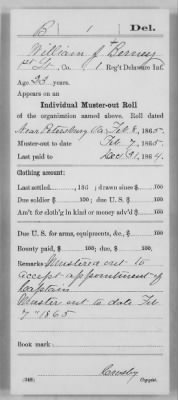 B | 1 | Del.
William J Berney
1st Lt., Co. I, 1 Reg't Delaware Inf.
Age 23 years.
Appears on an
Individual Muster-out Roll
of the organization named above. Roll dated
Near Petersburg Va Feb 8, 1865.
Muster-out to date Feb 7, 1865
Last paid to Dec 31, 1864.
Clothing account:
Last settled 186 ; drawn since $ 100
Due soldier $ 100; due U. S. $ 100
Am't for cloth'g in kind or money adv'd $ 100
Due U. S. for arms, equipments, &c., $ 100
Bounty paid, $ 100; due, $ 100
Remarks Mustered out to
accept appointment of
Captain
Muster out to date Feb
7" 1865
Book mark
Copyist.